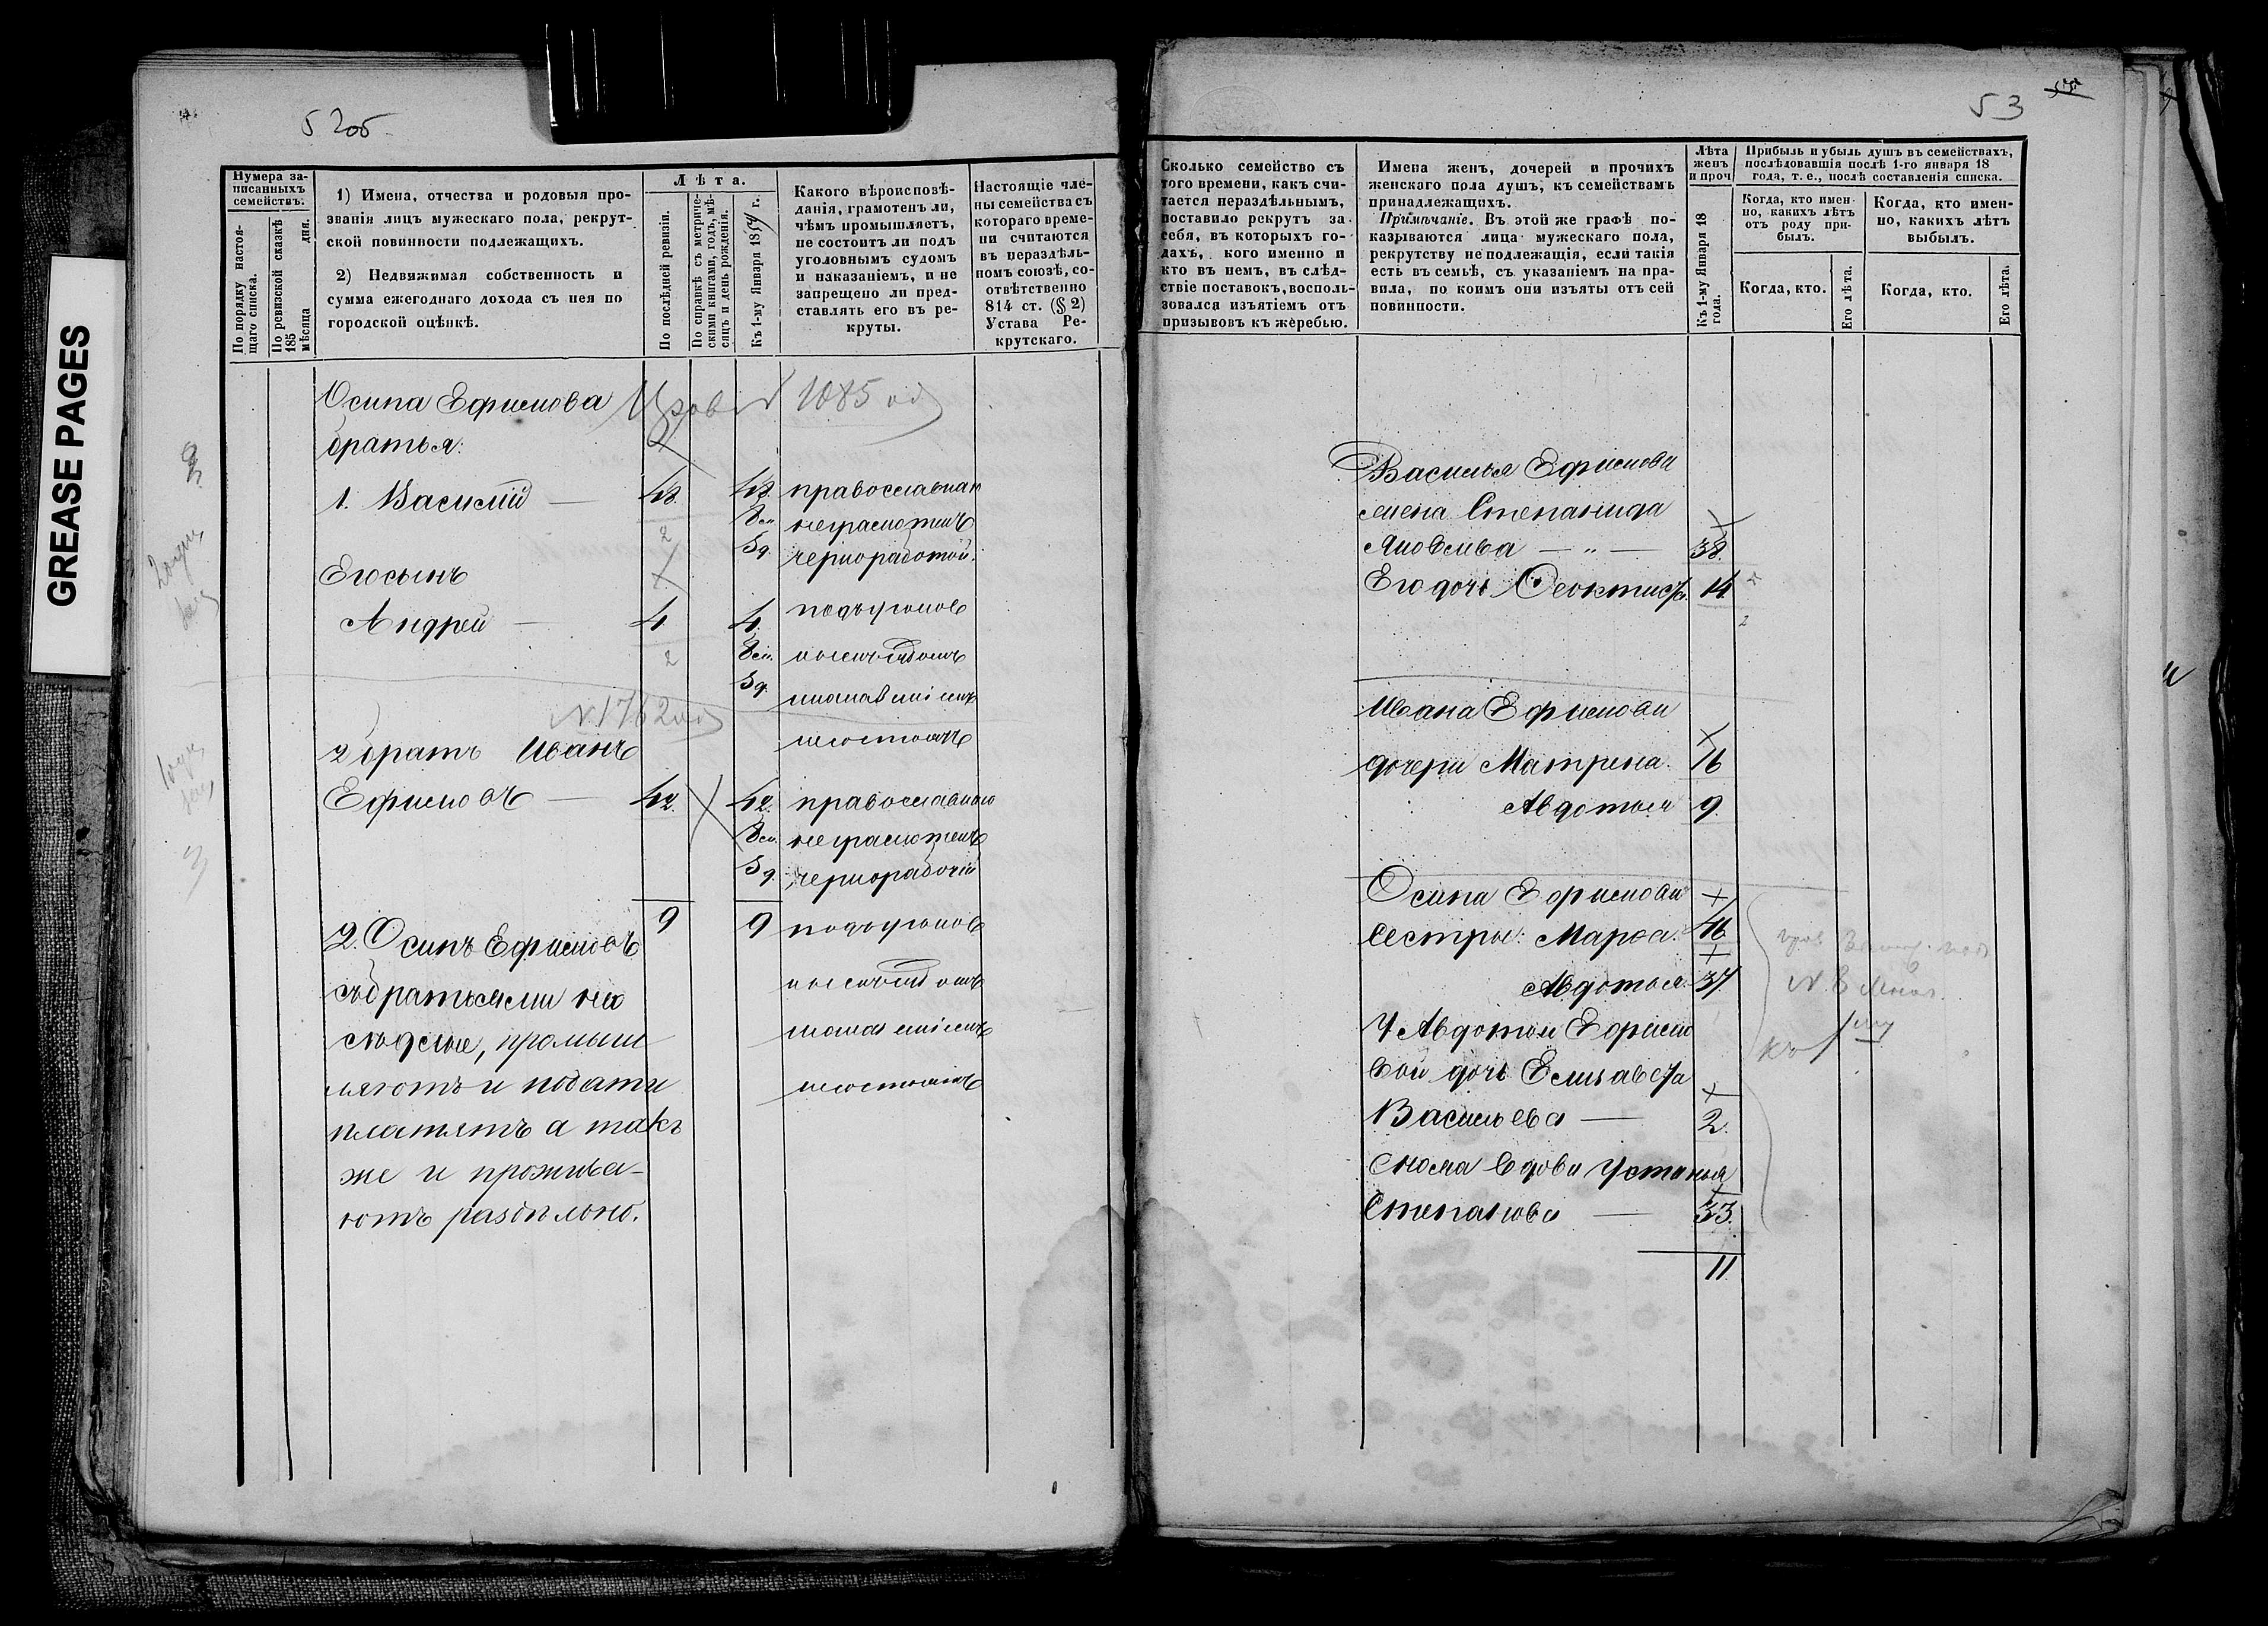 GREASE PAGES
52об
Нумера за-
писанныхъ
семействъ.
По порядку настоя-
щаго списка.
По ревизской сказкѣ
185 дня.
мѣсяца
1) Имена, отчества и родовыя про-
званія лицъ мужескаго пола, рекрут-
ской повинности подлежащихъ.
2) Недвижимая собственность и
сумма ежегоднаго дохода съ нея по
городской оцѣнкѣ.
Лѣта.
По послѣдней ревизіи.
По справкѣ съ метриче-
скими книгами, годъ, мѣ-
сяцъ и день рожденія.
Къ 1-му Января 18 г.
Какого вѣроисповѣ-
данія, грамотенъ ли,
чѣмъ промышляетъ,
не состоитъ ли подъ
уголовнымъ судомъ
и наказаніемъ, и не
запрещено ли пред-
ставлять его въ ре-
круты.
Настоящіе чле-
ны семейства съ
котораго време-
ни считаются
въ нераздѣль-
номъ союзѣ, со-
отвѣтственно
814 ст. (§ 2)
Устава Ре-
крутскаго.
Осипа Ефимова 1085
братья:
1. Василій — 48. 48. православнаго
8м. неграмотенъ
5д. черноработой.
Его сынъ
Андрей — 4 4. подъуголов
8м. нымъ судомъ
5д. инаказаніемъ
N 1762
2 братъ Иванъ несостоитъ
Ефимовъ — 42. 42. православного
8м. неграмотенъ
5д. чернорабочій
9 9 подъуголов
2. Осипъ Ефимовъ
събратьями нымъ судомъ
инаказаніемъ
промыш-
ляютъ и подати несостоитъ
платятъ а так
же и прожива-
ютъ
53
55
Сколько семейство съ
того времени, какъ счи-
тается нераздѣльнымъ,
поставило рекрутъ за
себя, въ которыхъ го-
дахъ, кого именно и
кто въ немъ, въ слѣд-
ствіе поставокъ, восполь-
зовался изъятіемъ отъ
призывовъ къ жеребью.
Имена женъ, дочерей и прочихъ
женскаго пола душъ, къ семействамъ
принадлежащихъ.
Примѣчаніе. Въ этой же графѣ по-
казываются лица мужескаго пола,
рекрутству не подлежащія, если такія
есть въ семьѣ, съ указаніемъ на пра-
вила, по коимъ они изъяты отъ сей
повинности.
Лѣта
женъ
и проч.
Къ 1-му Января 18
года.
Прибыль и убыль душъ въ семействахъ,
послѣдовавшія послѣ 1-го января 18
года, т. е., послѣ составленія списка.
Когда, кто имен-
но, какихъ лѣтъ
отъ роду при-
былъ.
Когда, кто имен-
но, какихъ лѣтъ
выбылъ.
Когда, кто.
Его лѣта.
Когда, кто.
Его лѣта.
Василья Ефимова
жена Степанида
Яковлева — „ — 38.
Его дочь Феоктиста. 14.
Ивана Ефимова
дочери Матрена. 16
Авдотья 9.
Осипа Ефимова
Сестры: Марфа. 46
Авдотья. 37
У Авдотьи Ефимо
вой дочь Елизавета
Васильева — 2.
Сноха вдова Устинья
Степанова — 33.
11.